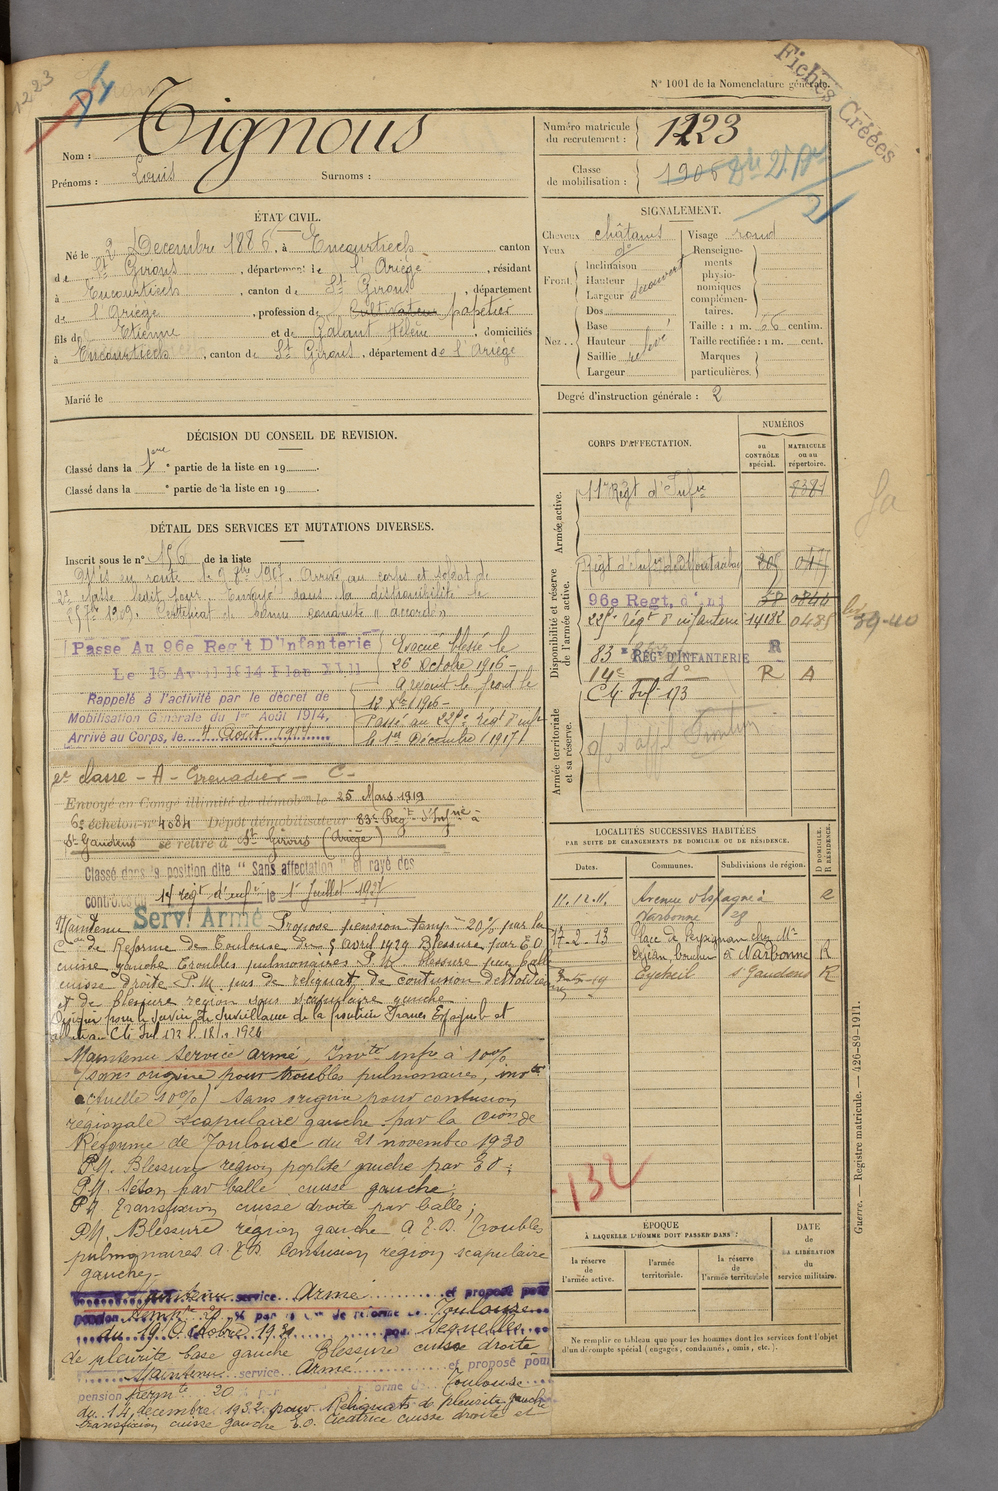 N° 1001 de la Nomenclature générale.
Fiches Créées
1223
Nom : Tignous
Prénoms : Louis Surnoms :
Numéro matricule du recrutement : 1223
Classe de mobilisation : 1906
ÉTAT CIVIL.
Né le 2 Décembre 1886, à Encourtiech canton
de St Girons, département de l'Ariège, résidant
à Encourtiech, canton de St Girons, département
de l'Ariège, profession de Cultivateur papetier
fils de Etienne et de Galant Hélène, domiciliés
à Encourtiech, canton de St Girons, département de l'Ariège
Marié le
SIGNALEMENT.
Cheveux châtains Visage rond
Yeux do
Front. Inclinaison
Hauteur
Largeur découvert
Nez... Dos
Base
Hauteur
Saillie relevé
Largeur
Renseignements physionomiques complémentaires.
Taille : 1 m. 66 centim.
Taille rectifiée : 1 m. cent.
Marques particulières.
Degré d'instruction générale : 2
DÉCISION DU CONSEIL DE REVISION.
Classé dans la 1ère partie de la liste en 19
Classé dans la e partie de la liste en 19
DÉTAIL DES SERVICES ET MUTATIONS DIVERSES.
Inscrit sous le n° 156 de la liste
Mis en route le 7 8bre 1907. Arrivé au corps et soldat de
2e classe ledit jour. Envoyé dans la disponibilité le
25 7bre 1909. Certificat de bonne conduite "accordé"
Passé Au 96e Reg't D'Infanterie
Le 15 Avril 1914 Plan XVII
Rappelé à l'activité par le décret de
Mobilisation Générale du 1er Août 1914,
Arrivé au Corps, le 4 Août 1914
Evacué blessé le
26 Octobre 1916 -
A rejoint le front le
12 Xbre 1916 -
Passé au 225e régt d'infie
le 1er Décembre 1917
2e classe - A - Grenadier - C -
Envoyé en Congé illimité de démob. le 25 Mars 1919
6e échelon n° 4084 Dépôt démobilisateur 83e Régt d'Infie à
St Gaudens se retire à St Girons (Ariège)
Classé dans la position dite "Sans affectation" et rayé des
contrôles du 14 régt d'infie le 1er Juillet 1927
Maintenu Serv. Armé Propose pension temp. 20% par la
Con de Réforme de Toulouse du 5 avril 1929 Blessure par E.O.
cuisse gauche Troubles pulmonaires P.M. blessure par balle
cuisse droite P.M. pas de reliquat de contusion
et de blessure région sous scapulaire gauche
Maintenu service armé, Invté infre à 10%
(sans origine pour troubles pulmonaires, invté
actuelle 10%) sans origine pour contusion
régionale scapulaire gauche par la Cion de
Réforme de Toulouse du 21 novembre 1930
P.M. Blessure région poplité gauche par E.O ;
P.M. Séton par balle cuisse gauche ;
P.M transfixion cuisse droite par balle ;
P.M. Blessure région gauche A.E.D. Troubles
pulmonaires A.E.D. Contusion région scapulaire
gauche. -
Maintenu service Armé et proposé pour
pension temp. 20 % par la Con de réforme de Toulouse
du 19 Octobre 1931 pour séquelles
de pleurite base gauche Blessure cuisse droite
Maintenu service Armé et proposé pour
pension permte 20 % par réforme de Toulouse
du 14 décembre 1932 pour Reliquats de pleurite gauche
transfixion cuisse gauche E.O. cicatrice cuisse droite et
CORPS D'AFFECTATION.
NUMÉROS
au CONTRÔLE spécial.
MATRICULE ou au répertoire.
Armée active.
Disponibilité et réserve de l'armée active.
Armée territoriale et sa réserve.
Régt d'Infie 8381
Régt d'Infie de Montauban
96e Regt. d'Inf
225e régt d'infanterie 14182 0485
83 e REGt D'INFANTERIE R
14e do R A
Cti Inf 173
39-40
LOCALITÉS SUCCESSIVES HABITÉES
PAR SUITE DE CHANGEMENTS DE DOMICILE OU DE RÉSIDENCE.
Dates. Communes. Subdivisions de région. D DOMICILE. R RÉSIDENCE.
11.12.11. Avenue d'Espagne à
Narbonne 29
17-2-13 Place de Perpignan chez Mr
boucher à Narbonne R
Eycheil St Gaudens R
132
ÉPOQUE
À LAQUELLE L'HOMME DOIT PASSER DANS :
la réserve de l'armée active.
l'armée territoriale.
la réserve de l'armée territoriale
DATE de LA LIBÉRATION du service militaire.
Ne remplir ce tableau que pour les hommes dont les services font l'objet
d'un décompte spécial (engagés, condamnés, omis, etc.).
Guerre. — Registre matricule. — 426-89-1911.